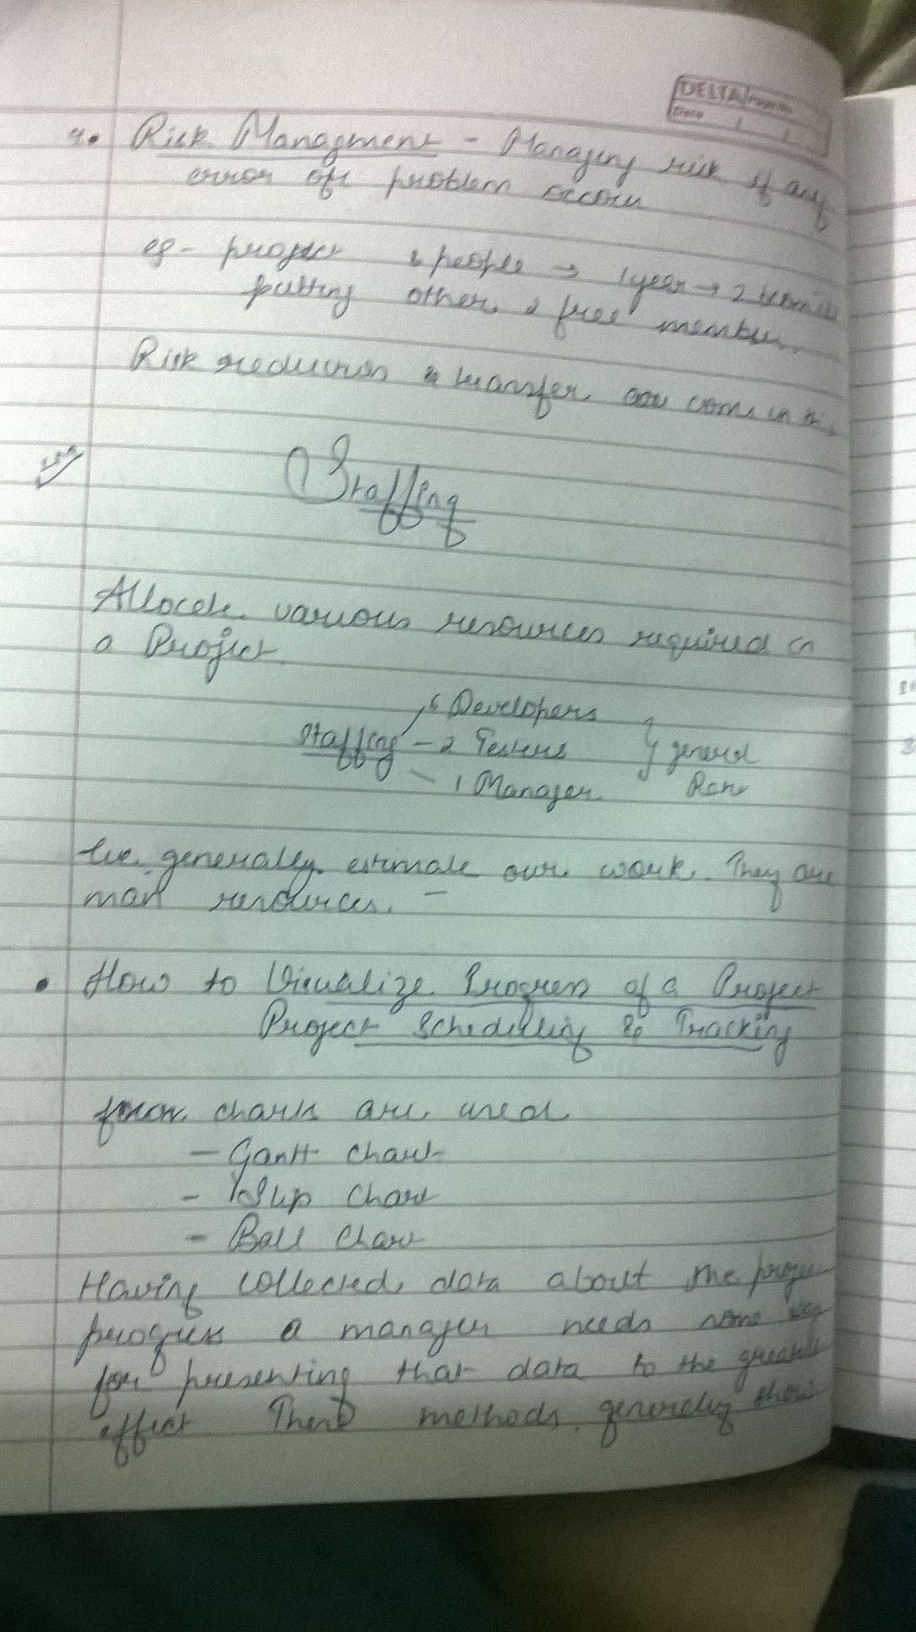 DELTA
Date / /
4. Risk Managment - Managing risk if any
error or problem occurs
eg - project & people → 1 year → 2
putting other 2 free member
Risk reduction & transfer are come in
Staffing
Allocate various resources required in
a Project.
6 Developers
Staffing - 2 Testers } general
1 Manager
We generally estimate our work. They are
man resources. -
• How to Visualize Progress of a Project
Project Schedulling & Tracking
charts are used
- Gantt chart
- Slip Chart
- Ball Chart
Having collected data about the project
progress a manager needs some way
for presenting that data to the greatest
effect. methods generally show